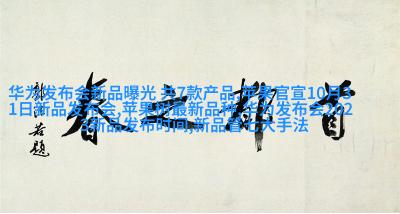 华为发布会新品曝光 共7款产品,苹果官宣10月3
1日新品发布会,苹果树最新品种,华为发布会202
新品发布时间,新品管七大手法
首都之春
郭沫若题